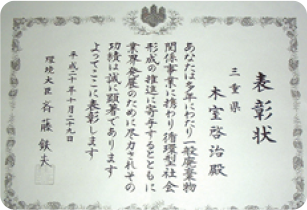 表彰状
三重県
木室啓治殿
あなたは多年にわたり一般廃棄物
関係事業に携わり循環型社会
形成の推進に寄与するとともに
業界発展のために尽力されその
功績は誠に顕著であります
よってここに表彰します
平成二十年十月二十九日
環境大臣 斉藤鉄夫